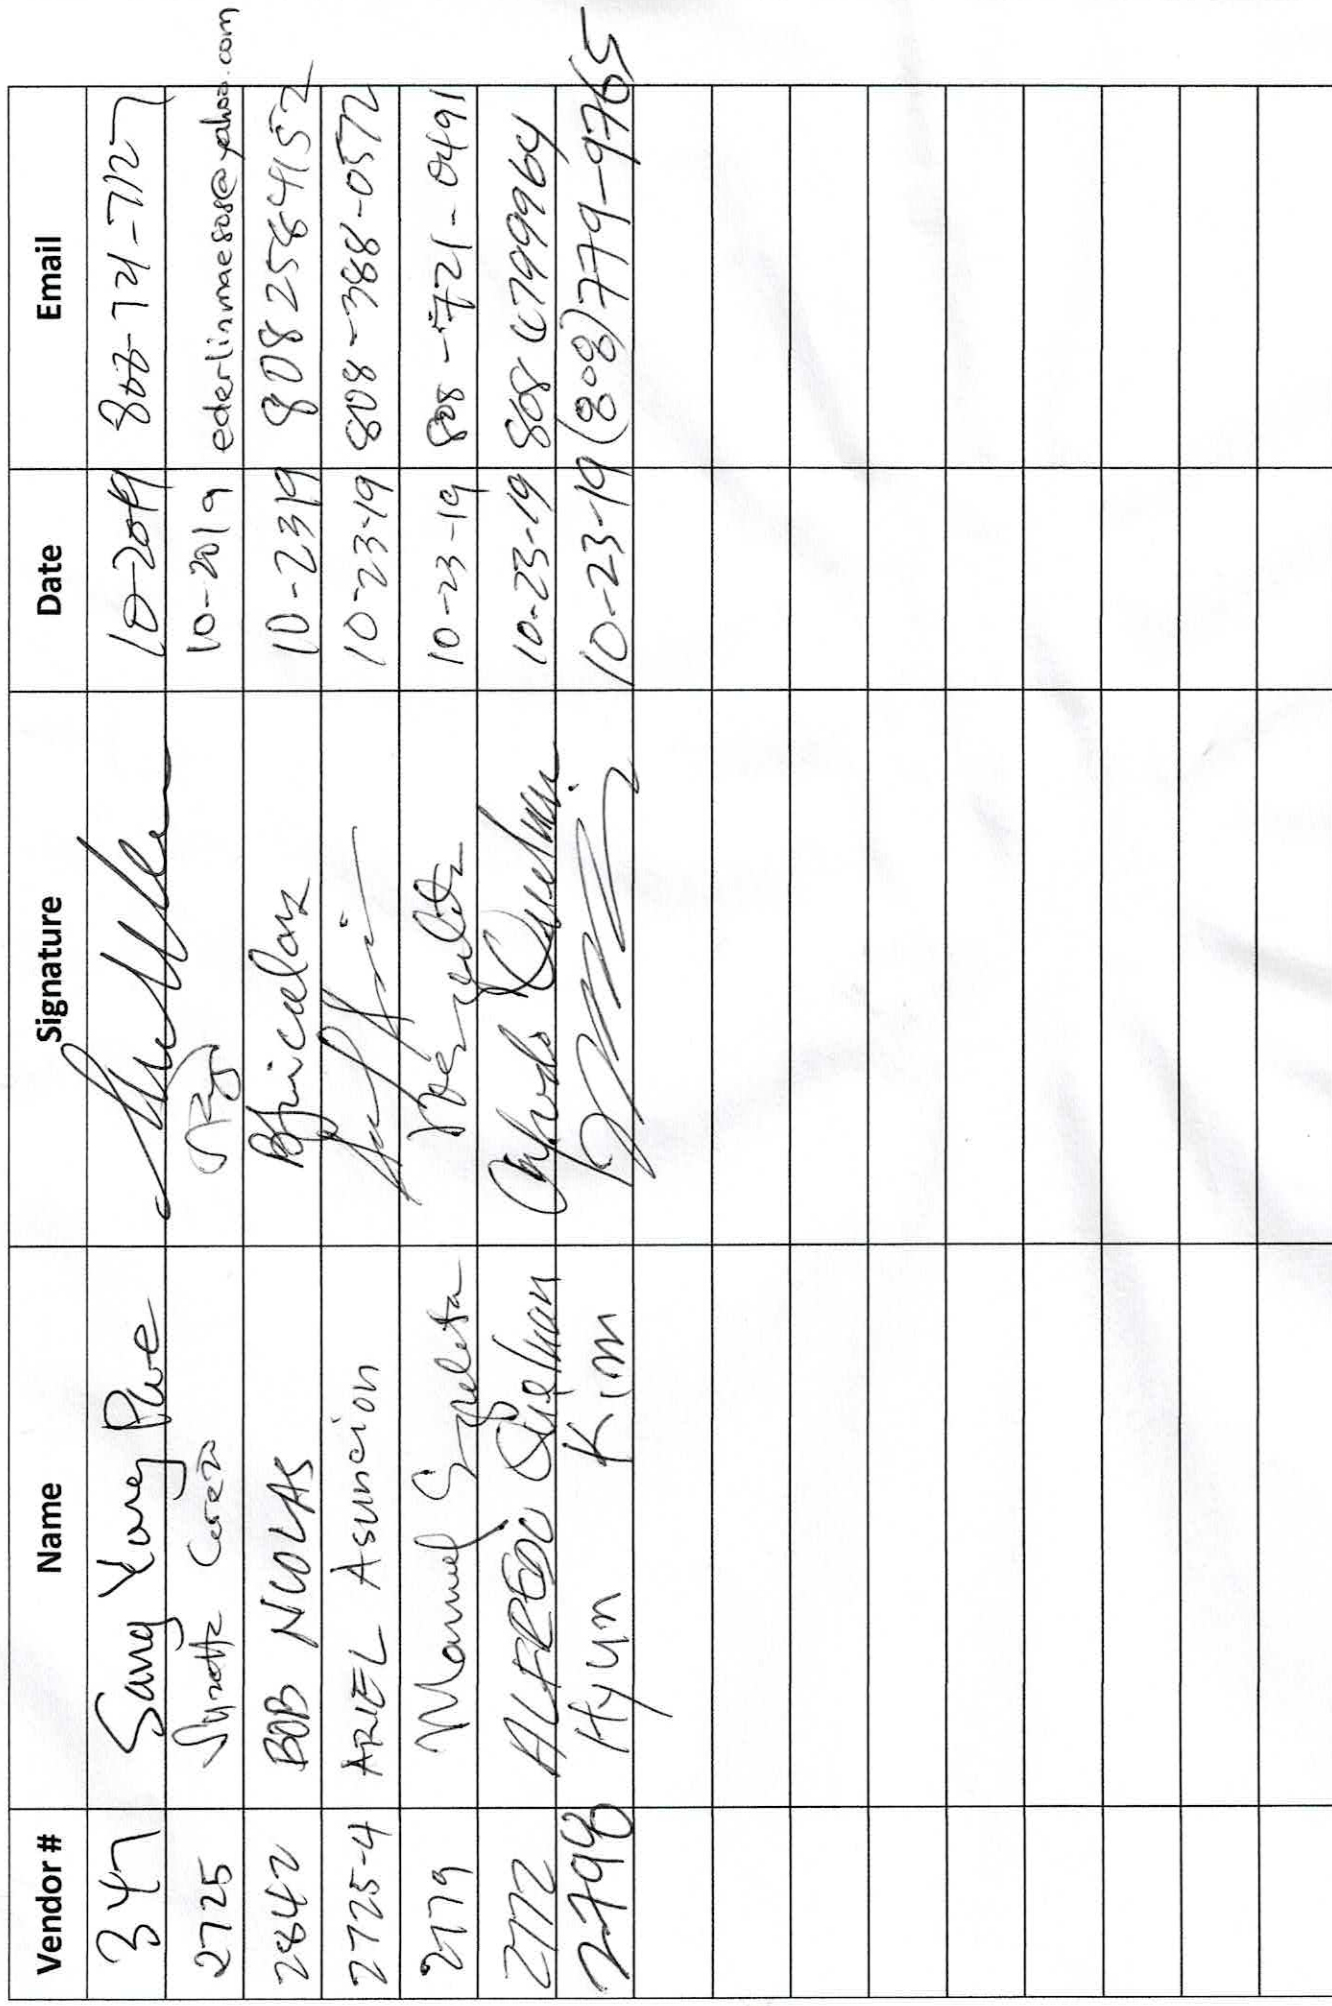 Vendor # Name Signature Date Email
347 Sang Yong 10-2019 808-721-7127
2725 10-2019 ederlinmae808@yahoo.com
2842 BOB NICOLAS 10-2319 8082584152
2725-4 ARIEL Asuncion 10-23-19 808-388-0572
2779 Manuel 10-23-19 808-721-0491
2772 ALFREDO Alfredo 10-23-19 8086799964
2798 Hyun Kim 10-23-19 (808)779-9765